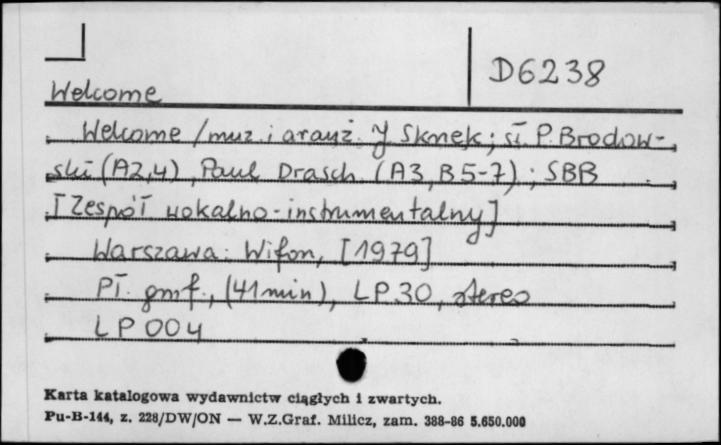 D6238
Welcome
Welcome / muz. i aranż. J Skrzek; sł. P. Brodow-
ski (A2,4), Paul Drasch (A3, B5-7); SBB
[Zespół wokalno-instrumentalny]
Warszawa: Wifon, [1979]
Pł. gmf., (41 min), LP.30, stereo
LP 004
Karta katalogowa wydawnictw ciągłych i zwartych.
Pu-B-144, z. 228/DW/ON — W.Z.Graf. Milicz, zam. 388-86 5.650.000